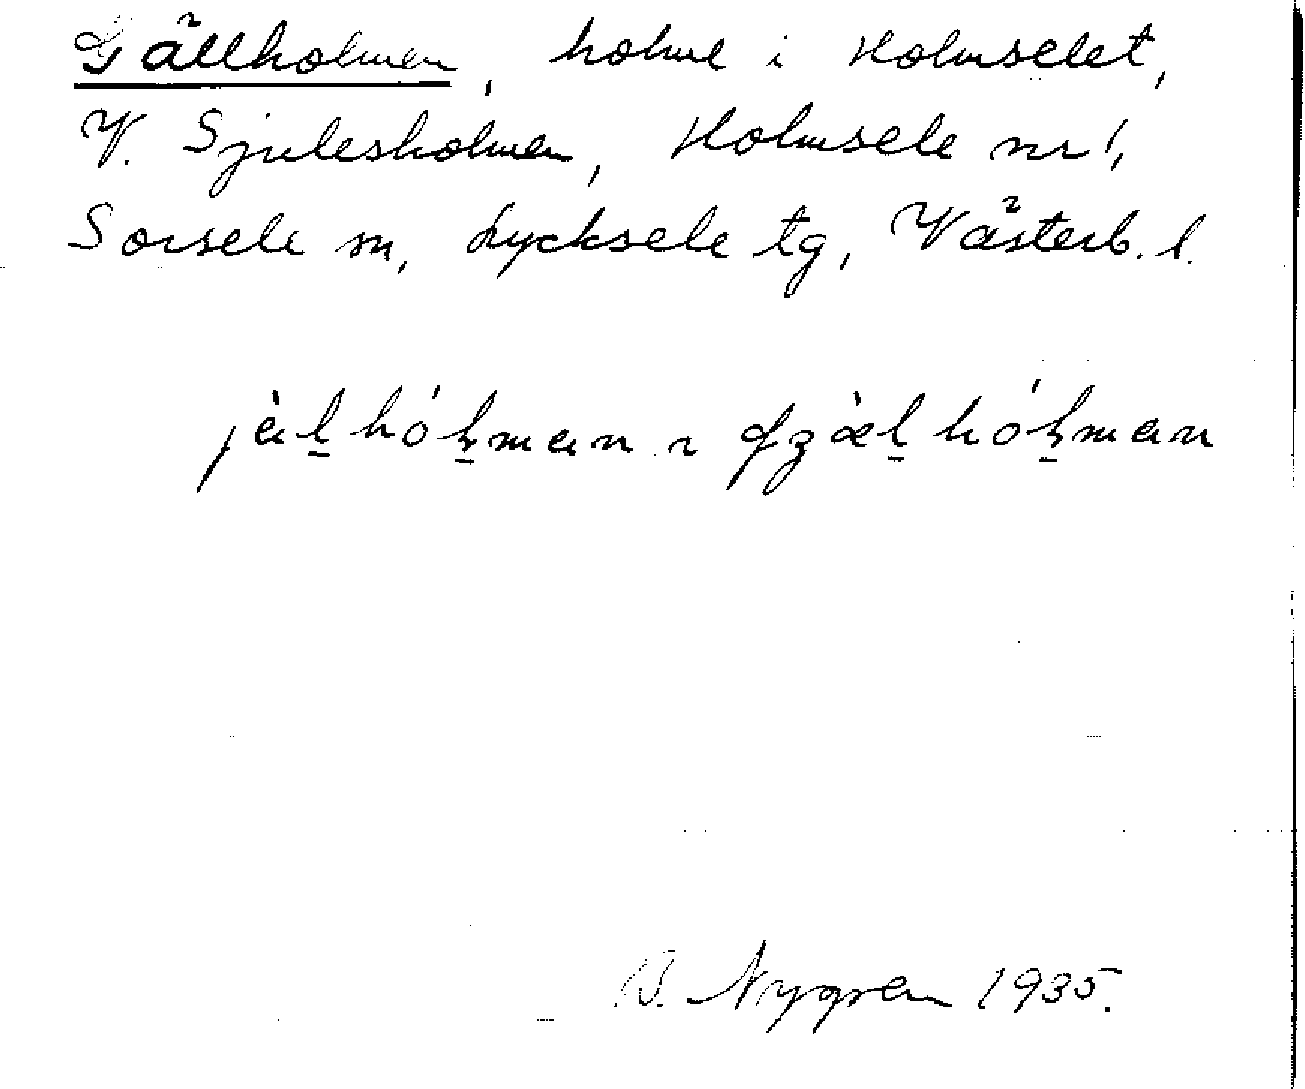 Gällholmen, holme i Holmselet,
V. Sjulesholmen, Holmsele nr 1,
Sorsele sn, Lycksele tg, Västerb. l.
B. Nygren 1935.